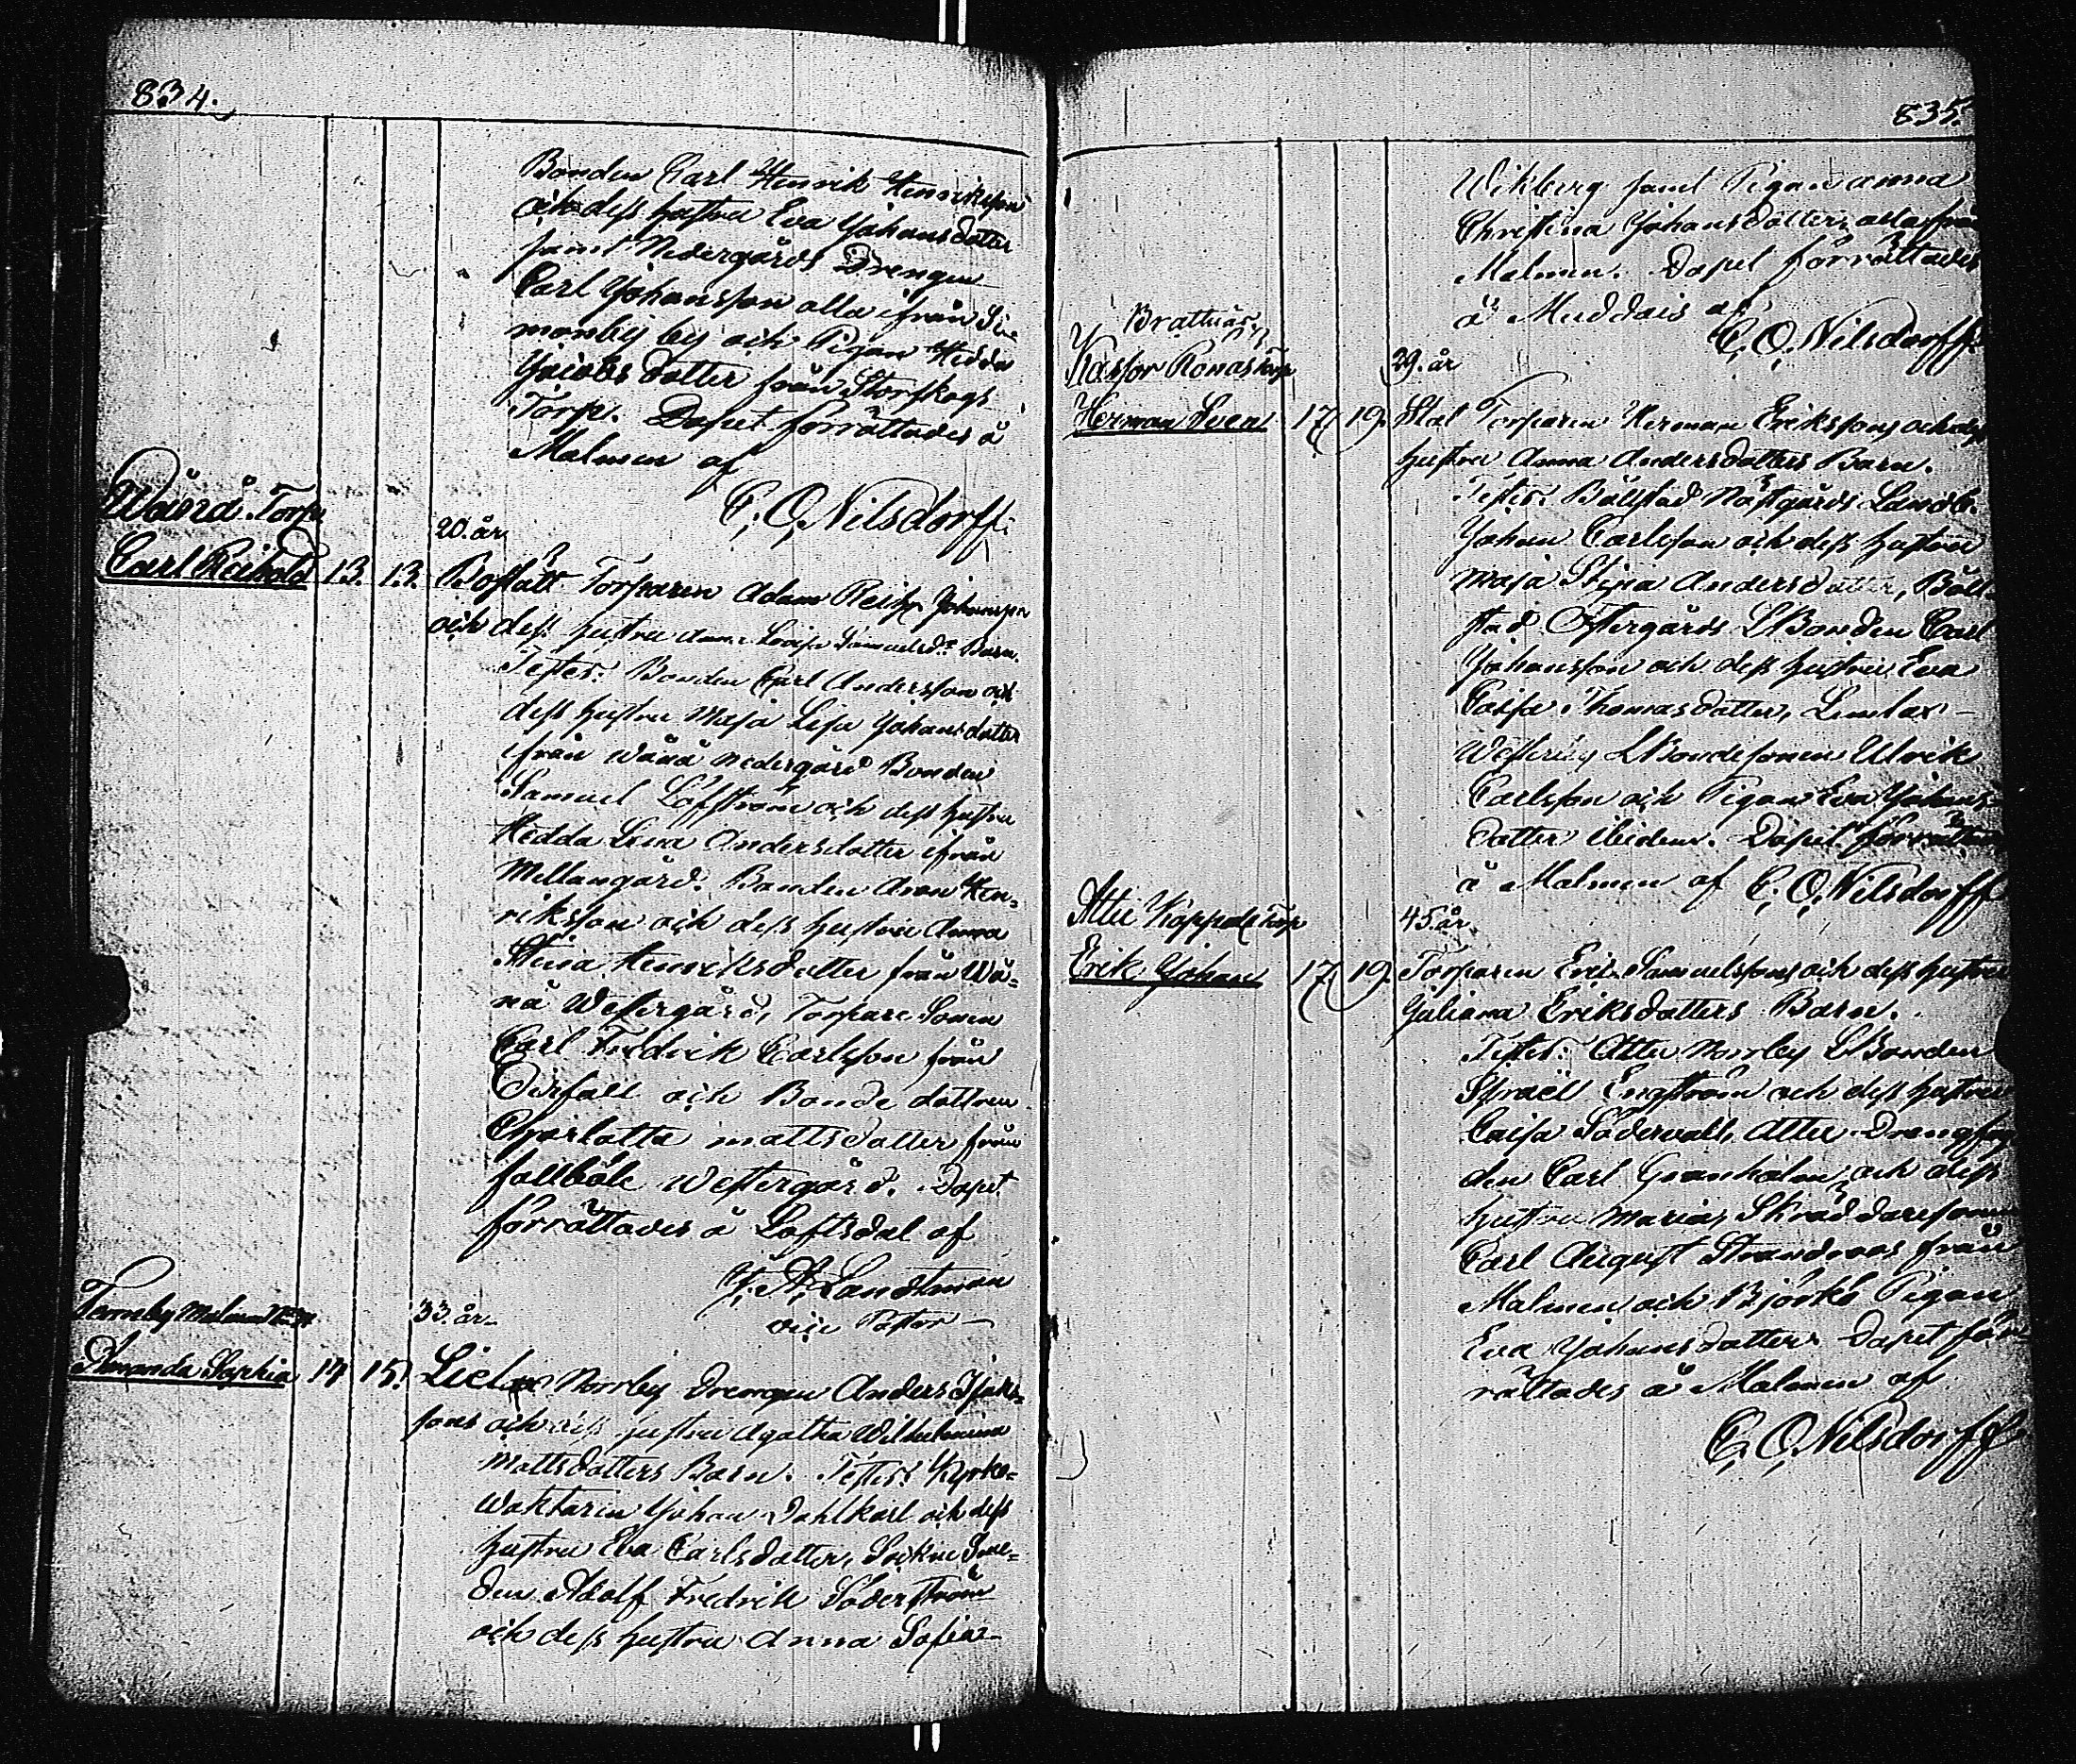 834.
Bonden Carl Henrik Henriksson
och dess hustru Eva Johansdotter
samt Nedergårds Drengen
Carl Johansson alla ifrån Si-
monbÿ bÿ och Pigan Hedda
Jacobsdotter från Storskogs
Torp. Dopet förrättades å
Malmen af
C. O. Nilsdorff.
Wånå Torp
20. år
Carl Reihold 13. 13. Bofsatt Torparen Adam Reihn Johansson
och dess hustru Anna Lovisa Samuelsd:s Barn.
Testes: Bonden Carl Andersson och
dess hustru Maja Lisa Johansdotter
ifrån Wånå Nedergård Bonden
Samuel Löfström och dess hustru
Hedda Lena Andersdotter ifrån
Mellangård. Bonden Aron Hen-
riksson och dess hustru Anna
Stina Henriksdotter från Wå-
nå Westergård, Torpare Sonen
Carl Fredrik Carlsson från
och Bonde dottren
Charlotta Mattsdotter från
fallböle Westergård. Dopet
förrättades å Loftsdal af
Landtman
vice Pastor
Ferneby Malmen
33. år
Amanda Sophia 14 15. Norrbÿ Drengen Anders Isaks-
sons och dess hustru Agatha Wilhelmina
Mattsdotters Barn. Testes: Kyrko-
waktaren Johan Dahlkarl och dess
hustru Eva Carlsdotter, Sockne Sme-
den Adolf Fredrik Söderström
och dess hustru Anna Sofia
835.
Wikberg samt Pigan Anna
Christina Johansdotter, alla från
Malmen. Dopet förrättades
å Muddais af
C. O. Nilsdorff.
Brattnäs
Kassor Ronas Torp
29. år
Herman Sven 17. 19. Stat Torparen Herman Erikssons och dess
hustru Anna Andersdotters Barn.
Testes: Böllstad Nästgårds Landb.
Johan Carlsson och dess hustru
Maja Stina Andersdotter, Böll-
stad Östergårds LBonden Carl
Johansson och dess hustru Eva
Caisa Thomasdotter, Lemlax
Westerby LBondesonen Ulrik
Carlsson och Pigan Eva Johans-
dotter ibidem. Dopet förrättades
å Malmen af C. O. Nilsdorff
Attu Kappels Torp
45. år
Erik Johan 17. 19. Torparen Erik Samuelssons och dess hustru
Juliana Eriksdotters Barn.
Testes: Attu Norrbÿ LBonden
Israel Engström och dess hustru
Caisa Södervall, Attu Drengfog-
den Carl Granholm, och dess
hustru Maria, Skräddaresonen
Carl August Strandroos från
Malmen och Björkö Pigan
Eva Johansdotter. Dopet för-
rättades å Malmen af
C. O. Nilsdorff